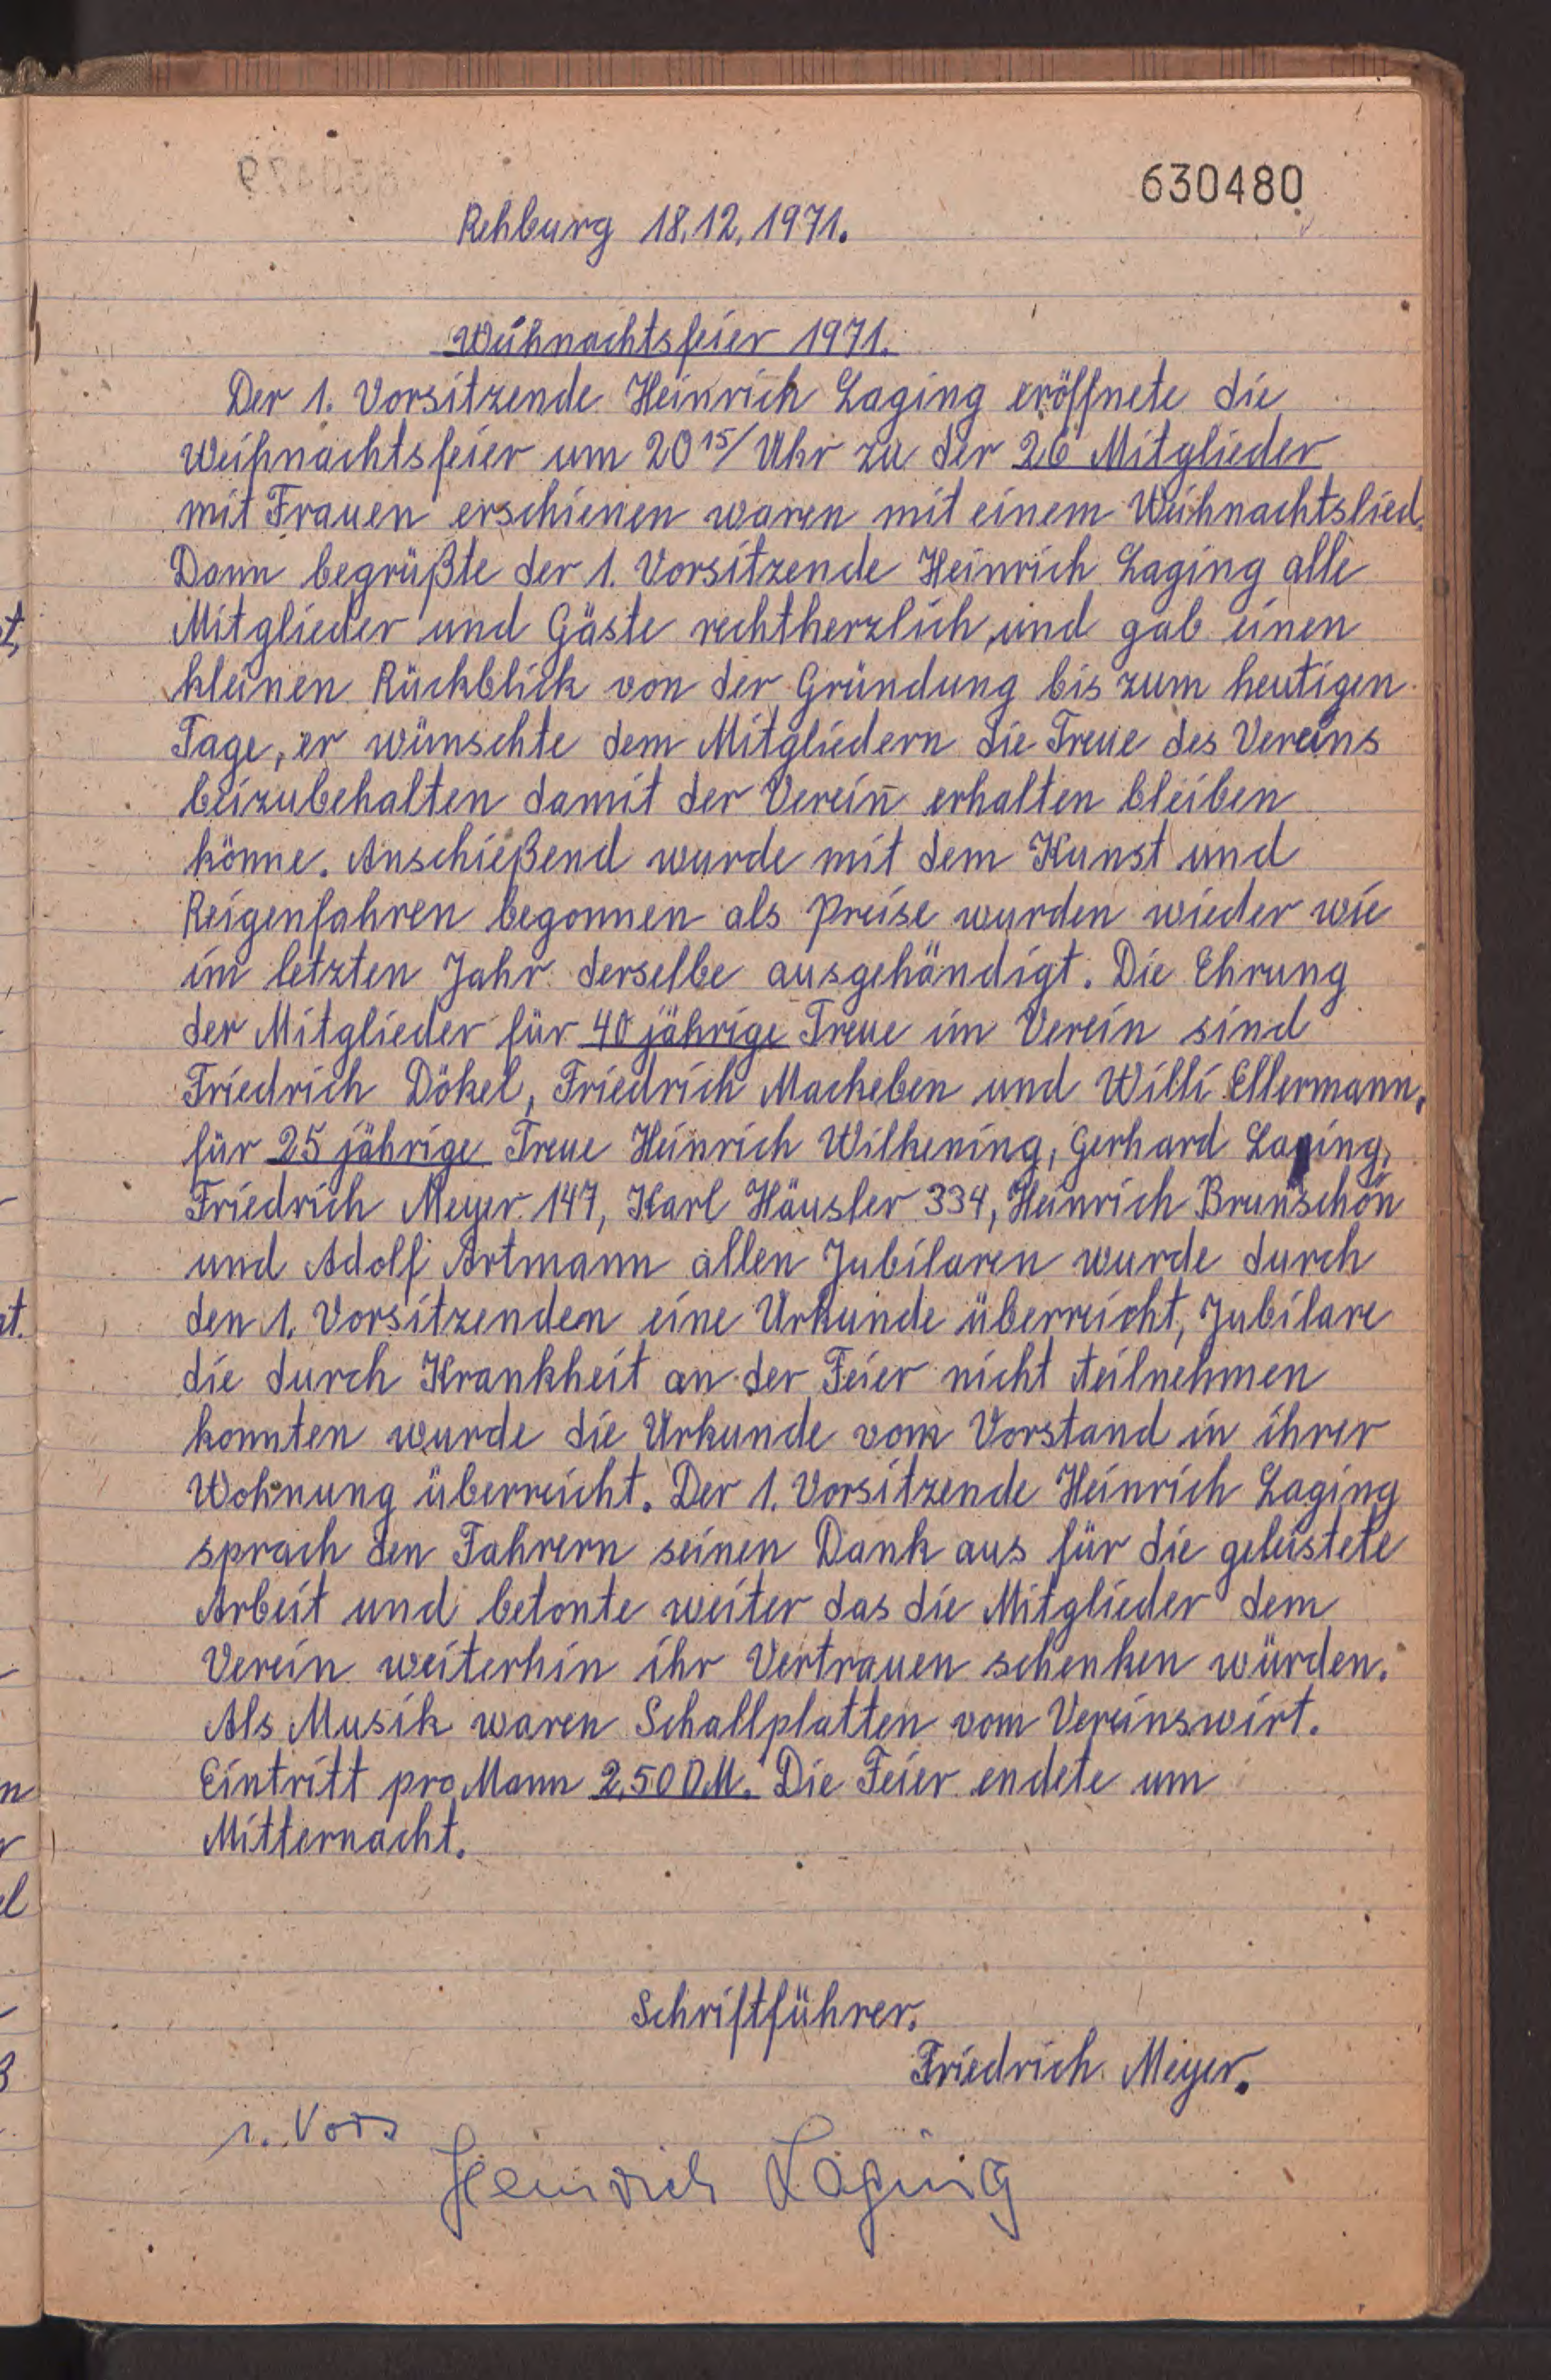 630480
Rehburg 18.12.1971.
Weihnachtsfeier 1971.
Der 1. Vorsitzende Heinrich Laging eröffnete die
Weihnachtsfeier um 20 15/ Uhr zu der 26 Mitglieder
mit Frauen erschienen waren mit einem Weihnachtslied.
Dann begrüßte der 1. Vorsitzende Heinrich Laging alle
Mitglieder und Gäste rechtherzlich, und gab einen
kleinen Rückblick von der Gründung bis zum heutigen
Tage, er wünschte dem Mitgliedern die Treue des Vereins
beizubehalten damit der Verein erhalten bleiben
könne. Anschießend wurde mit dem Kunst und
Reigenfahren begonnen als Preise wurden wieder wie
im letzten Jahr derselbe ausgehändigt. Die Ehrung
der Mitglieder für 40 jährige Treue im Verein sind
Friedrich Dökel, Friedrich Macheben und Willi Ellermann,
für 25 jährige Treue Heinrich Wilkening, Gerhard Laging,
Friedrich Meyer 147, Karl Häusler 334, Heinrich Brunschön
und Adolf Artmann allen Jubilaren wurde durch
den 1. Vorsitzenden eine Urkunde überreicht, Jubilare
die durch Krankheit an der Feier nicht teilnehmen
konnten wurde die Urkunde vom Vorstand in ihrer
Wohnung überreicht. Der 1. Vorsitzende Heinrich Laging
sprach den Fahrern seinen Dank aus für die geleistete
Arbeit und betonte weiter das die Mitglieder dem
Verein weiterhin ihr Vertrauen schenken würden.
Als Musik waren Schallplatten vom Vereinswirt.
Eintritt pro Mann 2,50 DM. Die Feier endete um
Mitternacht.
Schriftführer.
Friedrich Meyer.
1. Vors
Heinrich Laging